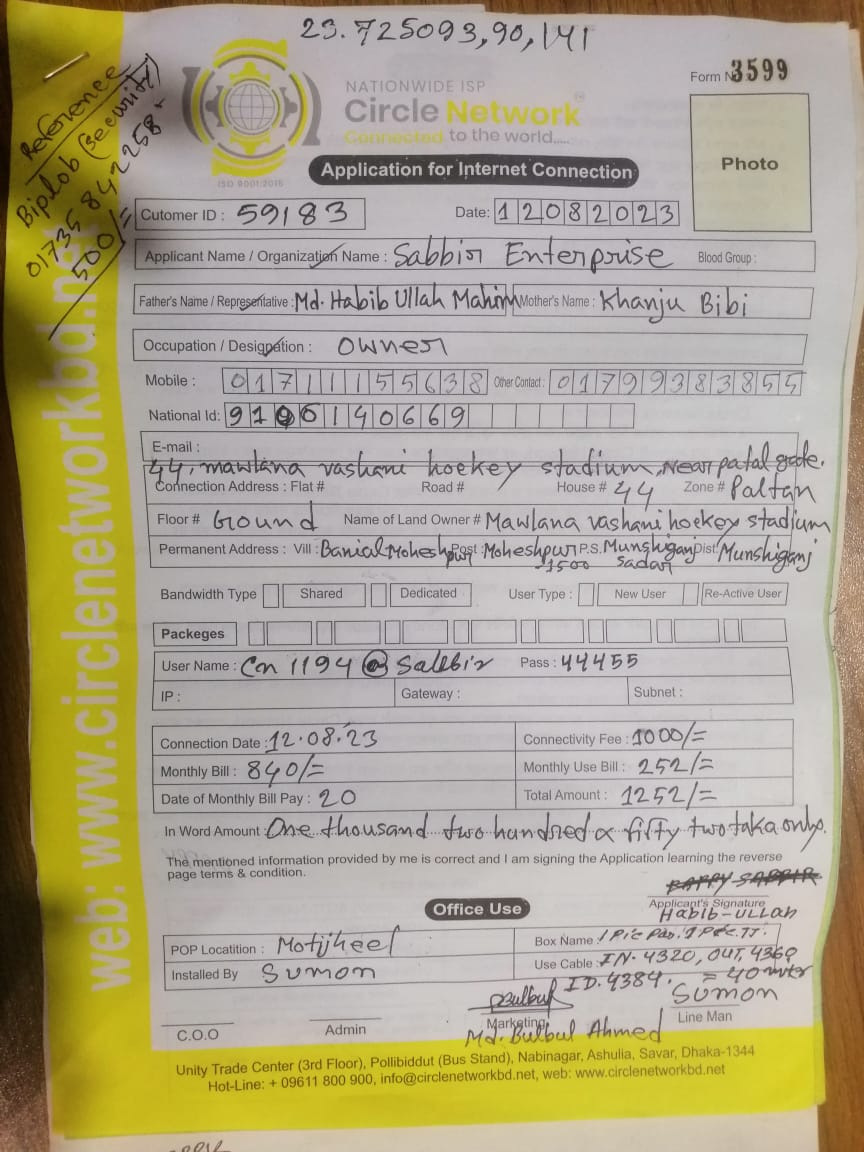 23.725093,90,141
Form No 3599
Reference
Biplob (security)
01735842258
500/=
NATIONWIDE ISP
Circle Network
Connected to the world.....
ISO 9001:2015
Application for Internet Connection
Photo
Cutomer ID : 59183 Date: 12082023
Applicant Name / Organization Name : Sabbir Enterprise Blood Group :
Father's Name / Representative : Md. Habib Ullah Mahim Mother's Name : Khanju Bibi
Occupation / Designation : Owner
Mobile : 01711155638 Other Contact : 01799383855
National Id: 9106140669
E-mail :
44, mawlana vashani hockey stadium, Near patal gate.
Connection Address : Flat # Road # House # 44 Zone # Paltan
Floor # Ground Name of Land Owner # Mawlana vashani hockey stadium
Permanent Address : Vill : Banial Moheshpur Post : Moheshpur P.S. Munshiganj Dist : Munshiganj
-1500 Sadar
Bandwidth Type Shared Dedicated User Type : New User Re-Active User
Packeges
User Name : Cn 1194 @ Sabbir Pass : 44455
IP : Gateway : Subnet :
Connection Date : 12.08.23 Connectivity Fee : 1000/=
Monthly Bill : 840/= Monthly Use Bill : 252/=
Date of Monthly Bill Pay : 20 Total Amount : 1252/=
In Word Amount : One thousand two hundred & fifty two taka only.
The mentioned information provided by me is correct and I am signing the Application learning the reverse
page terms & condition.
Applicant's Signature
Habib-Ullah
Office Use
POP Locatition : Motijheel Box Name
Installed By Sumon Use Cable : IN. 4320, OUT, 4360
ID. 4384. = 40 mtr
Sumon
C.O.O Admin Marketing Line Man
Md. Bulbul Ahmed
Unity Trade Center (3rd Floor), Pollibiddut (Bus Stand), Nabinagar, Ashulia, Savar, Dhaka-1344
Hot-Line: + 09611 800 900, info@circlenetworkbd.net, web: www.circlenetworkbd.net
web: www.circlenetworkbd.net